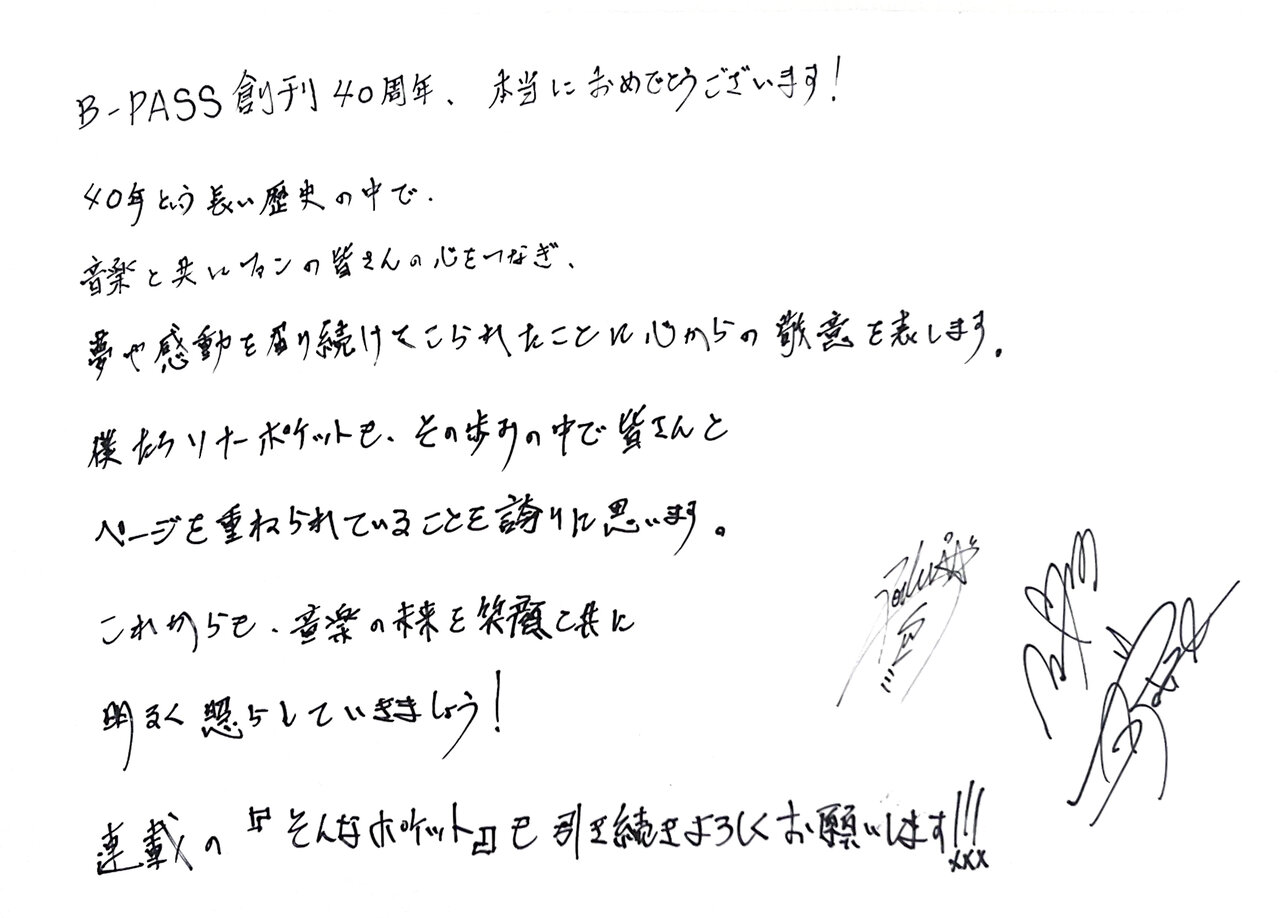 B-PASS 創刊40周年、本当におめでとうございます！
40年という長い歴史の中で、
音楽と共にファンの皆さんの心をつなぎ、
夢や感動を届け続けてこられたことに心からの敬意を表します。
僕たちリナーポケットも、その歩みの中で皆さんと
ページを重ねられていることを誇りに思います。
これからも、音楽の未来を笑顔と共に
明るく照らしていきましょう！
連載の『そんなポケット』も引き続きよろしくお願いします!!!
xxx